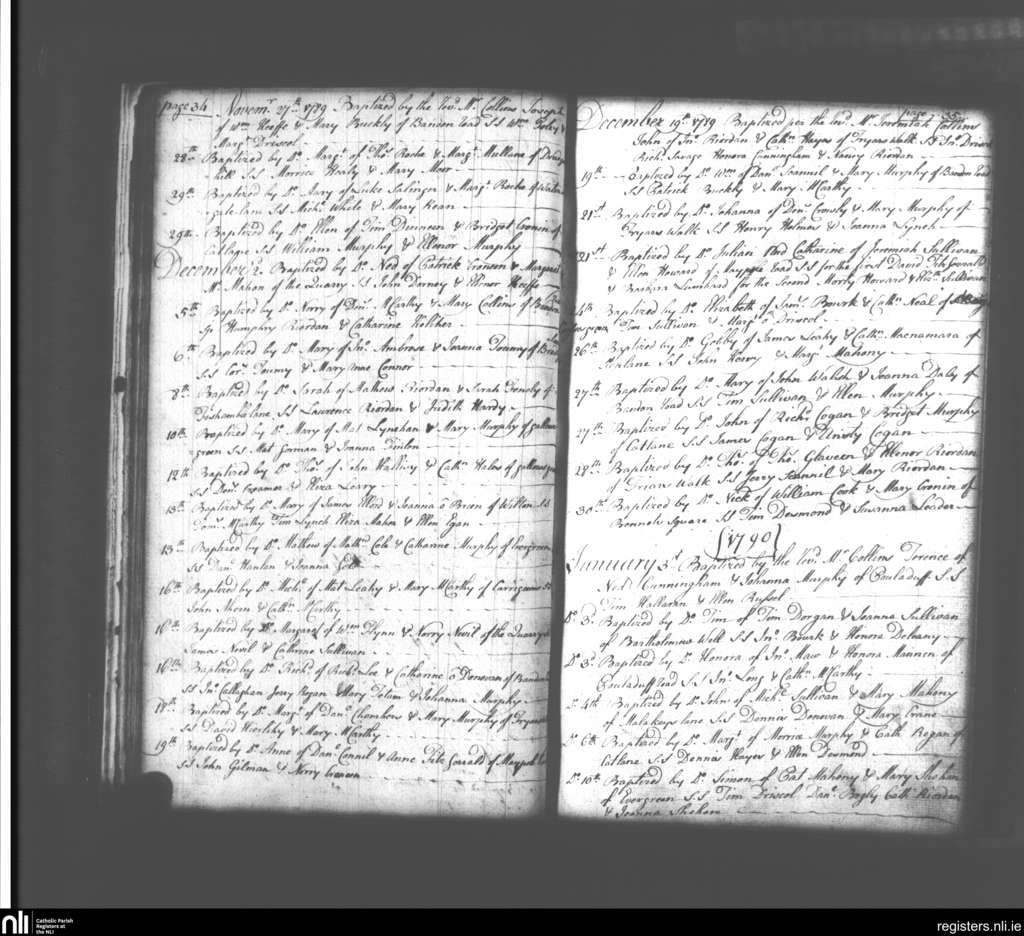 page 34 Novemr. 27th 1789 Baptized by the Revd. Mr. Collins Joseph
of Wm. Keeffe & Mary Buckly of Bandon road SS Wm. Foley &
Margt. Driscol
28th Baptized by Do. Margt. of Thos. Roche & Margt. Mullane of
SS Morrice Healy & Mary Moor
29th Baptized by Do. Mary of Luke & Margt. Roche of
gate lane SS Michl. White & Mary Kean
29th Baptized by Do. Ellen of Tim Dinneen & Bridget Cronin of
Catlane SS William Murphy & Ellenor Murphy
Decembr. 2 Baptized by Do. Ned of Patrick Croneen & Margaret
Mc Mahon of the Quarry SS John Dorney & Elenor Keeffe
5th Baptized by Do. Norry of Denis McCarthy & Mary Collins of Bandon
Sp Humphry Riordan & Catharine Kelcher
6th Baptized by Do. Mary of Jno. Ambrose & Joanna Toumy of
SS Cors. Toumy & Mary mac Connor
8th Baptized by Do. Sarah of Mathew Riordan & Sarah of
Fishamble lane SS Laurence Riordan & Judith Hardy
10th Baptized by Do. Mary of Mat Lynahan & Mary Murphy of gallows
green SS Mat Gorman & Joanna Finton
12th Baptized by Do. Thos. of John & Cathn. of gallows green
SS Denis Creamer & Eliza Leary
13th Baptized by Do. Mary of James & Joanna o Brien of Wilton SS
Danl. McCarthy Tim Lynch Eliza Mahon & Ellen Egan
15th Baptized by Do. Mathew of Mathw. Cole & Catharine Murphy of Evergreen
SS Danl. Hanlan & Joanna
16th Baptized by Do. Michl. of Mat Leahy & Mary McCarthy of
John Ahern & Cathn. McCarthy
16th Baptized by Do. Margaret of Wm. Flynn & Norry Nevil of the Quarry
James Nevil & Cathrine Sullivan
16th Baptized by Do. Richd. of Robt. Lee & Catharine o Donovan of Bandon
SS Jno. Callaghan Jerry Regan & Mary & Johanna Murphy
18th Baptized by Do. Margt. of Danl. Chambers & Mary Murphy of Fryars walk
SS David & Mary McCarthy
19th Baptized by Do. Anne of Danl. Connil & Anne Fitz Gerald of Maypole lane
SS John Gilman & Norry Croneen
page 35
December 19th 1789 Baptized per the Revd. Mr. Jeremiah Collins
John of Jno. Riordan & Cathn. Hayes of Fryars Walk SS Jno. Driscol
Richd. Savage Honora Cunningham & Nancy Riordan
19th Baptized by Do. Wm. of Danl. Scannil & Mary Murphy of Bandon road
SS Patrick Buckly & Mary McCarthy
21st Baptized by Do. Johanna of Denis Crowly & Mary Murphy of
Fryars Walk SS Henry Holmes & Joanna Lynch
21st Baptized by Do. Julian And Catharine of Jeremiah Sullivan
& Ellen Howard of Maypole road SS for the first David Fitz Gerald
& Barbara Lumbard for the Second Morty Howard & Elizth. Sullivan
4th Baptized by Do. Elizabeth of Saml. Bourk & Cathn. Neal of
Tim Sullivan & Margt. o Driscol
26th Baptized by Do. Gobby of James Leahy & Cathn. Macnamara of
SS John & Margt. Mahony
27th Baptized by Do. Mary of John Walsh & Joanna Daly of
Bandon road SS Tim Sullivan & Ellen Murphy
27th Baptized by Do. John of Richd. Cogan & Bridget Murphy
of Catlane SS James Cogan & Unity Cogan
28th Baptized by Do. Thos. of Thos. Glaveen & Ellenor Riordan
of Friars Walk SS Jerry Scannil & Mary Riordan
30th Baptized by Do. Nick of William Cook & Mary Cronin of
Square SS Tim Desmond & Susanna Leader
1790
January 3d Baptized by the Revd. Mr. Collins Terence of
Ned Cunningham & Johanna Murphy of Pouladuff SS
Tim Hallaran & Ellen Russel
Do. 3d Baptized by Do. Tim of Tim Dorgan & Joanna Sullivan
of Bartholomews Well SS Jno. Bourk & Honora Delaney
Do. 3d Baptized by Do. Honora of Jno. & Honora Manneen of
Pouladuff road SS Jno. Long & Cathn. McCarthy
Do. 4th Baptized by Do. John of Michl. Sullivan & Mary Mahony
of lane SS Dennis Donovan & Mary Crane
Do. 6th Baptized by Do. Margt. of Morrice Murphy & Cath Regan of
Catlane SS Dennis Hayes & Ellen Desmond
Do. 10th Baptized by Do. Simon of Pat Mahony & Mary
of Evergreen SS Tim Driscol Danl. Cath Riordan
& Joanna
nli
Catholic Parish
Registers at
the NLI
registers.nli.ie